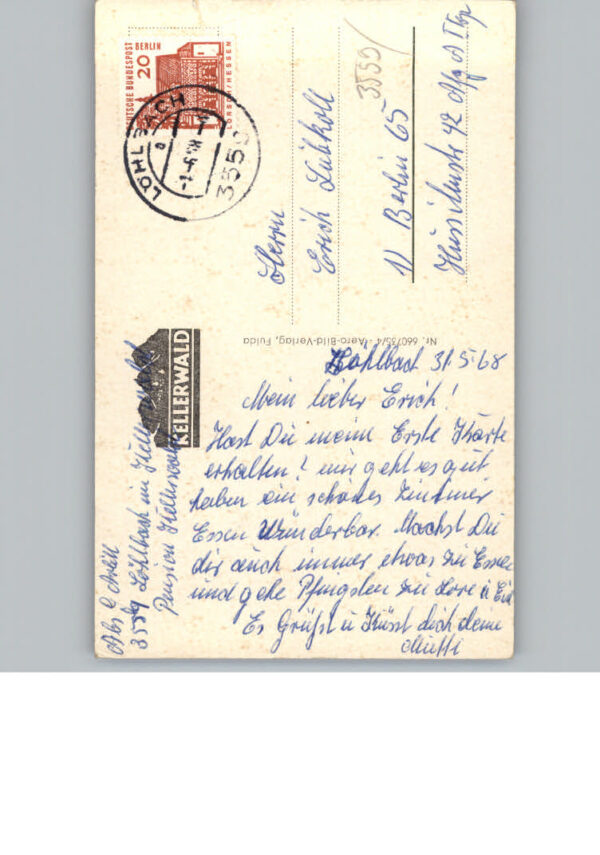 DEUTSCHE BUNDESPOST BERLIN
20
LORSCH/HESSEN
LÖHLBACH
3559
a
3559/
Herrn
Erich Lübkoll
1/ Berlin 65
Hussitenstr 42
Nr. 660735/4 - Aero-Bild-Verlag, Fulda
KELLERWALD
Löhlbach 31.5.68
Mein lieber Erich!
Hast Du meine Erste Karte
erhalten? mir geht es gut
haben ein schönes Zimmer
Essen Wunderbar. Machst Du
dir auch immer etwas zu Essen
und gehe Pfingsten zu Lore u
Es Grüßt u Küsst dich deine
Mutti
Abs
3559 Löhlbach im Kellerwald
Pension Kellerwald